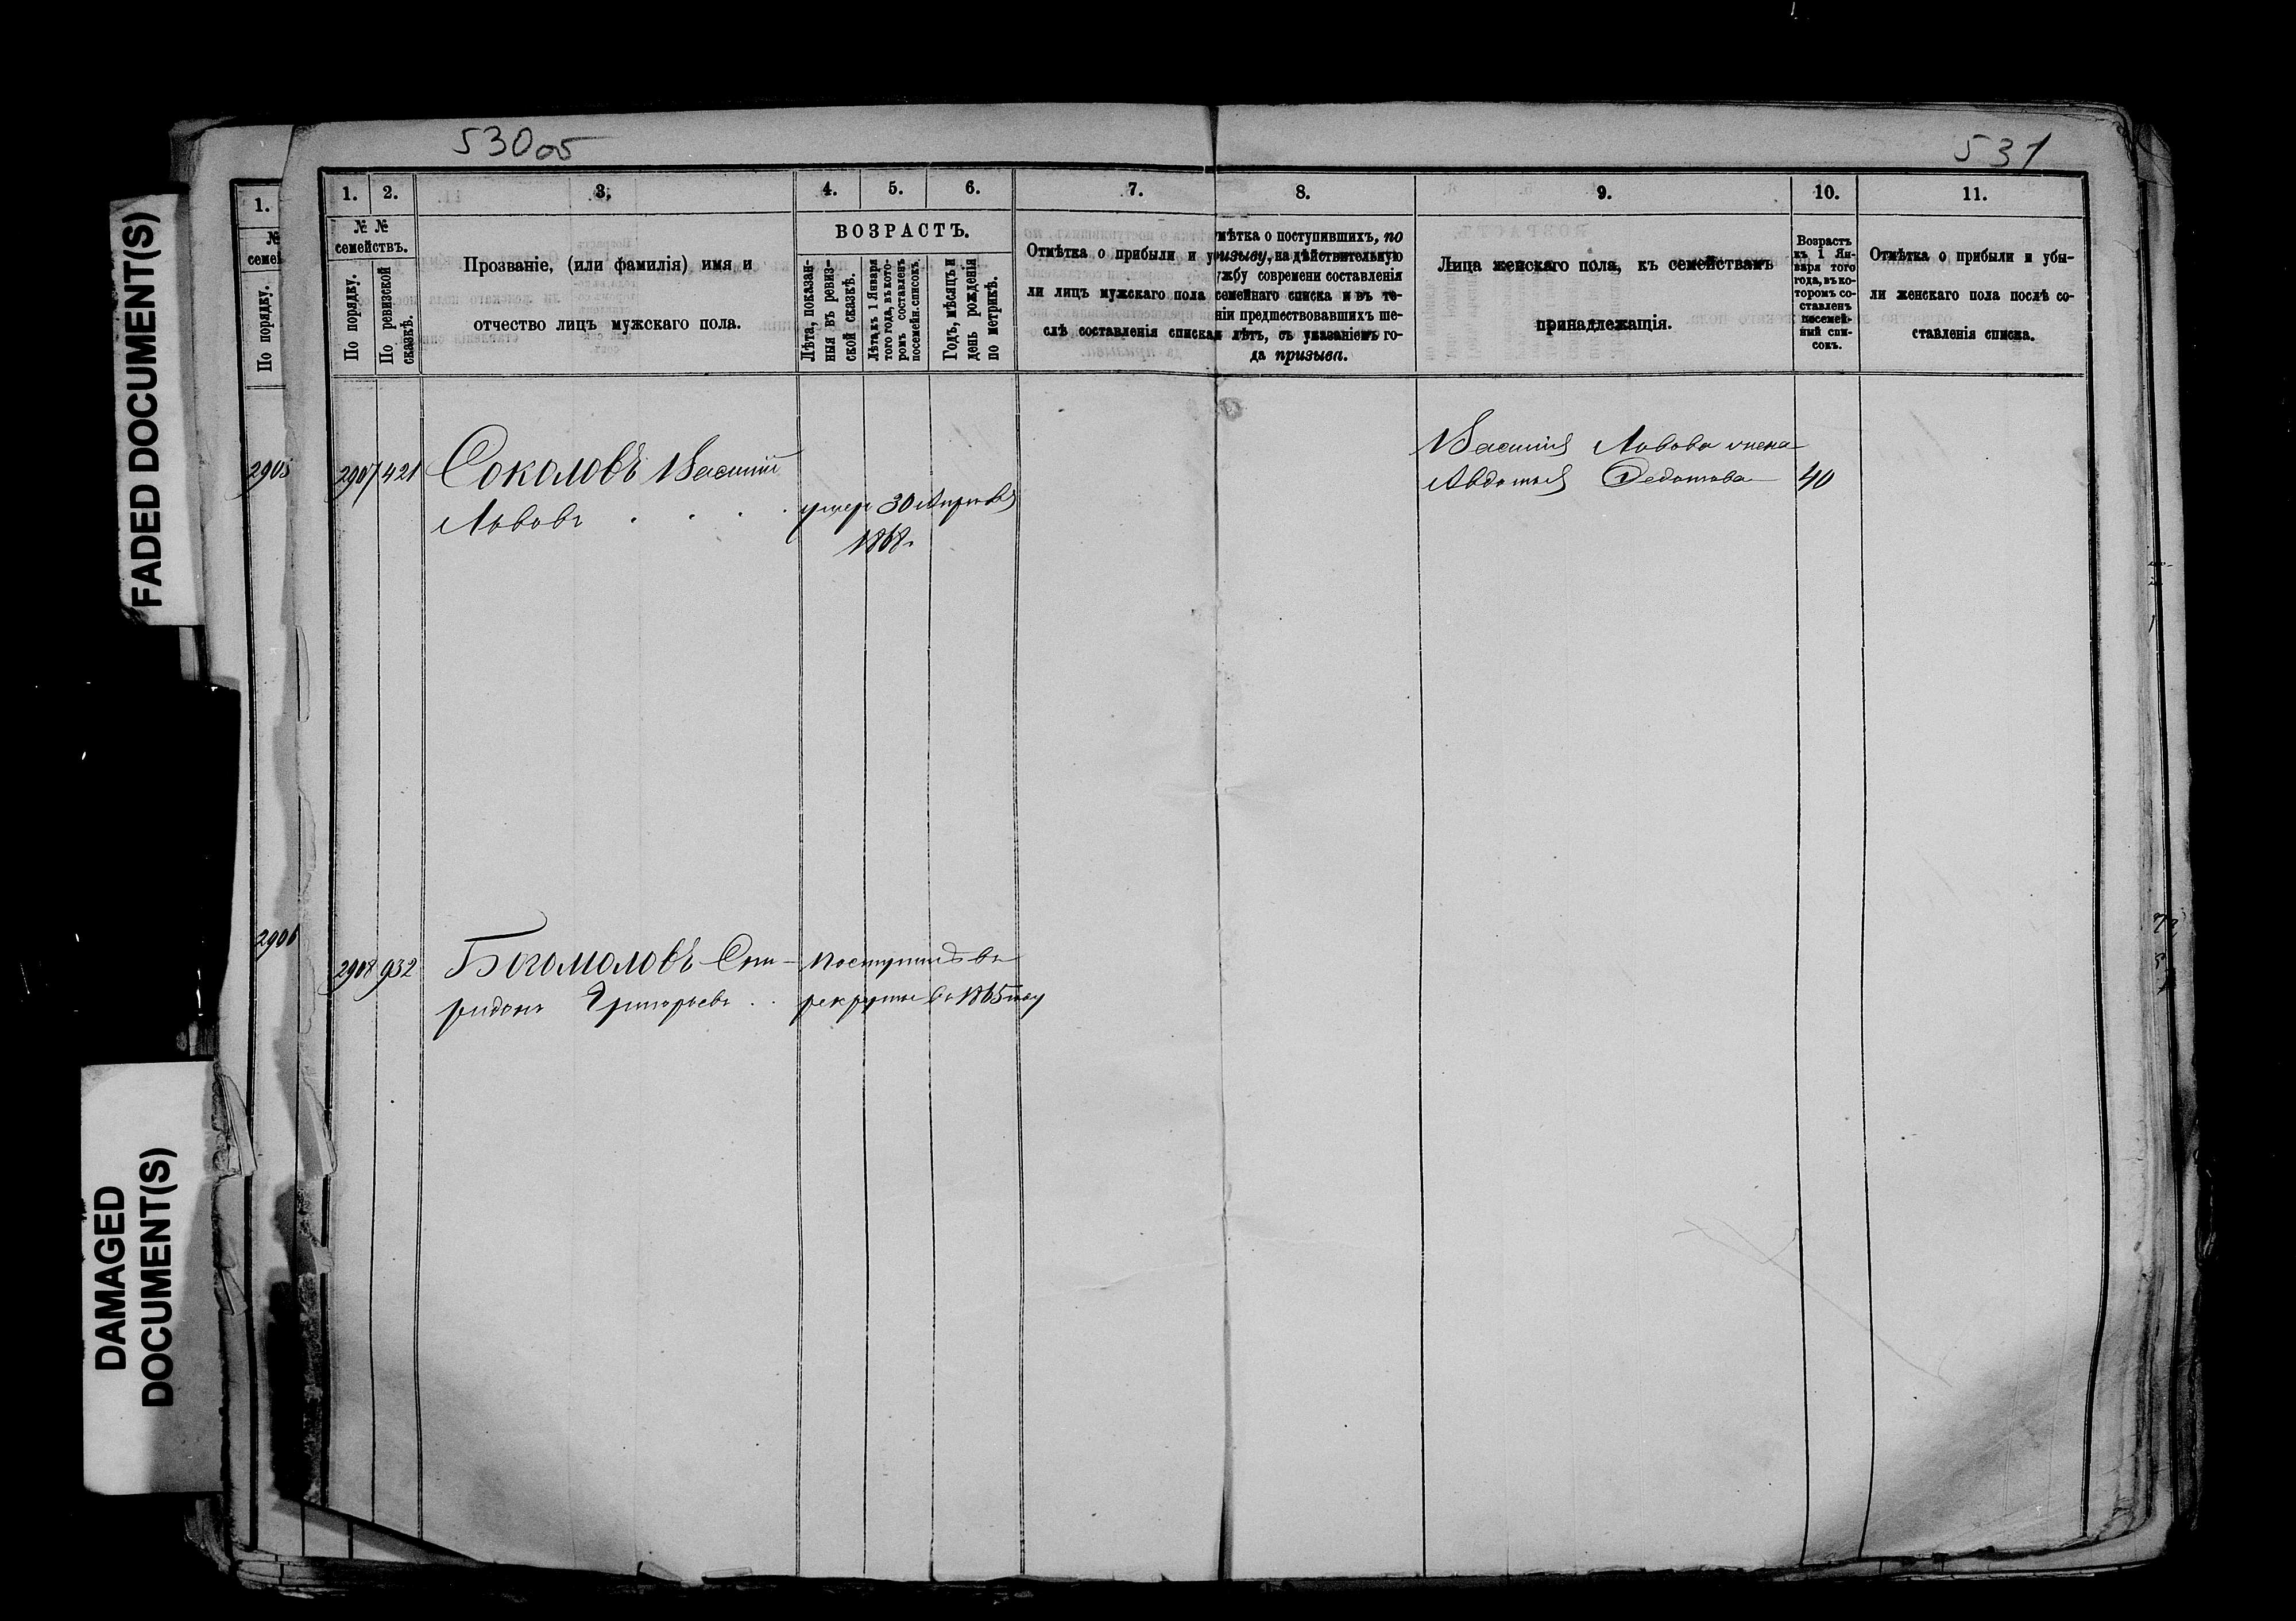 FADED DOCUMENT(S)
DAMAGED
DOCUMENT(S)
530об
531
1.
№
семей
По порядку.
2905
2906
1.
2.
3.
4.
5.
6.
7.
8.
9.
10.
11.
№ №
семействъ.
По порядку.
По ревизской
сказкѣ.
Прозваніе, (или фамилія) имя и
отчество лицъ мужскаго пола.
ВОЗРАСТЪ.
Лѣта, показан-
ныя въ ревиз-
ской сказкѣ.
Лѣта къ 1 Января
того года, въ кото-
ромъ составленъ
посемейн. списокъ.
Годъ, мѣсяцъ и
день рожденія
по метрикѣ.
Отмѣтка о прибыли и у
ли лицъ мужскаго пола
слѣ составленія списка
мѣтка о поступившихъ, по
ризыву, на дѣйствительную
жбу современи составленія
семейнаго списка и въ те-
ніи предшествовавшихъ ше-
лѣтъ, съ указаніемъ го-
да призыва.
Лица женскаго пола, къ семействамъ
принадлежащія.
Возрастъ
къ 1 Ян-
варя того
года, въ ко-
торомъ со-
ставленъ
посемей-
ный спи-
сокъ.
Отмѣтка о прибыли и убы-
ли женскаго пола послѣ со-
ставленія списка.
2907 421 Соколовъ Василій
Львовъ . . . . умеръ 30 Апрѣля
1868г.
Василія Львова жена
Авдотья Федотова 40
2908 932 Богомоловъ Спи- поступилъ въ
ридонъ Григорьевъ . . рекруты въ 1865 году